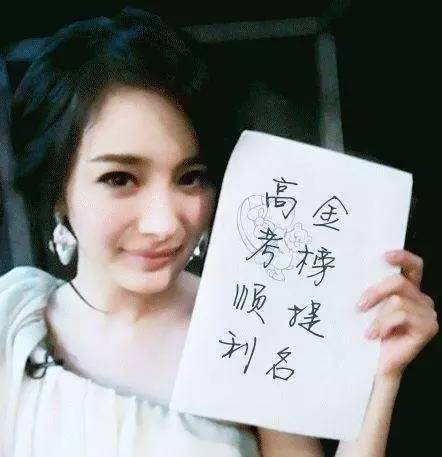 金榜提名
高考顺利